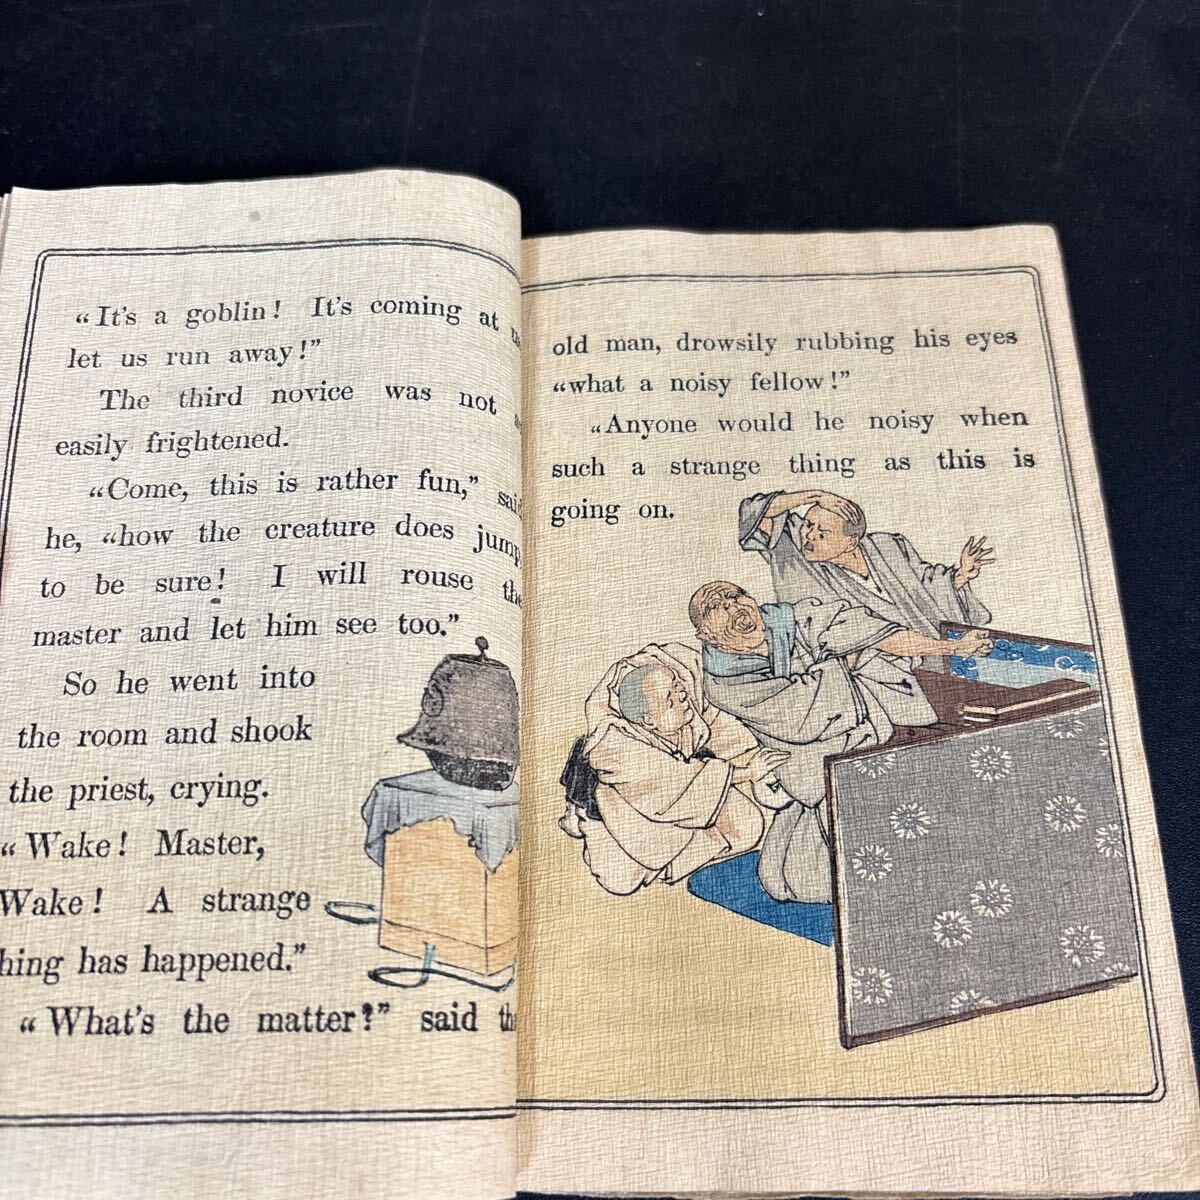 “It's a goblin! It's coming at
let us run away!”
The third novice was not
easily frightened.
“Come, this is rather fun,” said
he, “how the creature does jump,
to be sure! I will rouse the
master and let him see too.”
So he went into
the room and shook
the priest, crying.
“Wake! Master,
Wake! A strange
hing has happened.”
“What's the matter?” said the
old man, drowsily rubbing his eyes
“what a noisy fellow!”
“Anyone would he noisy when
such a strange thing as this is
going on.